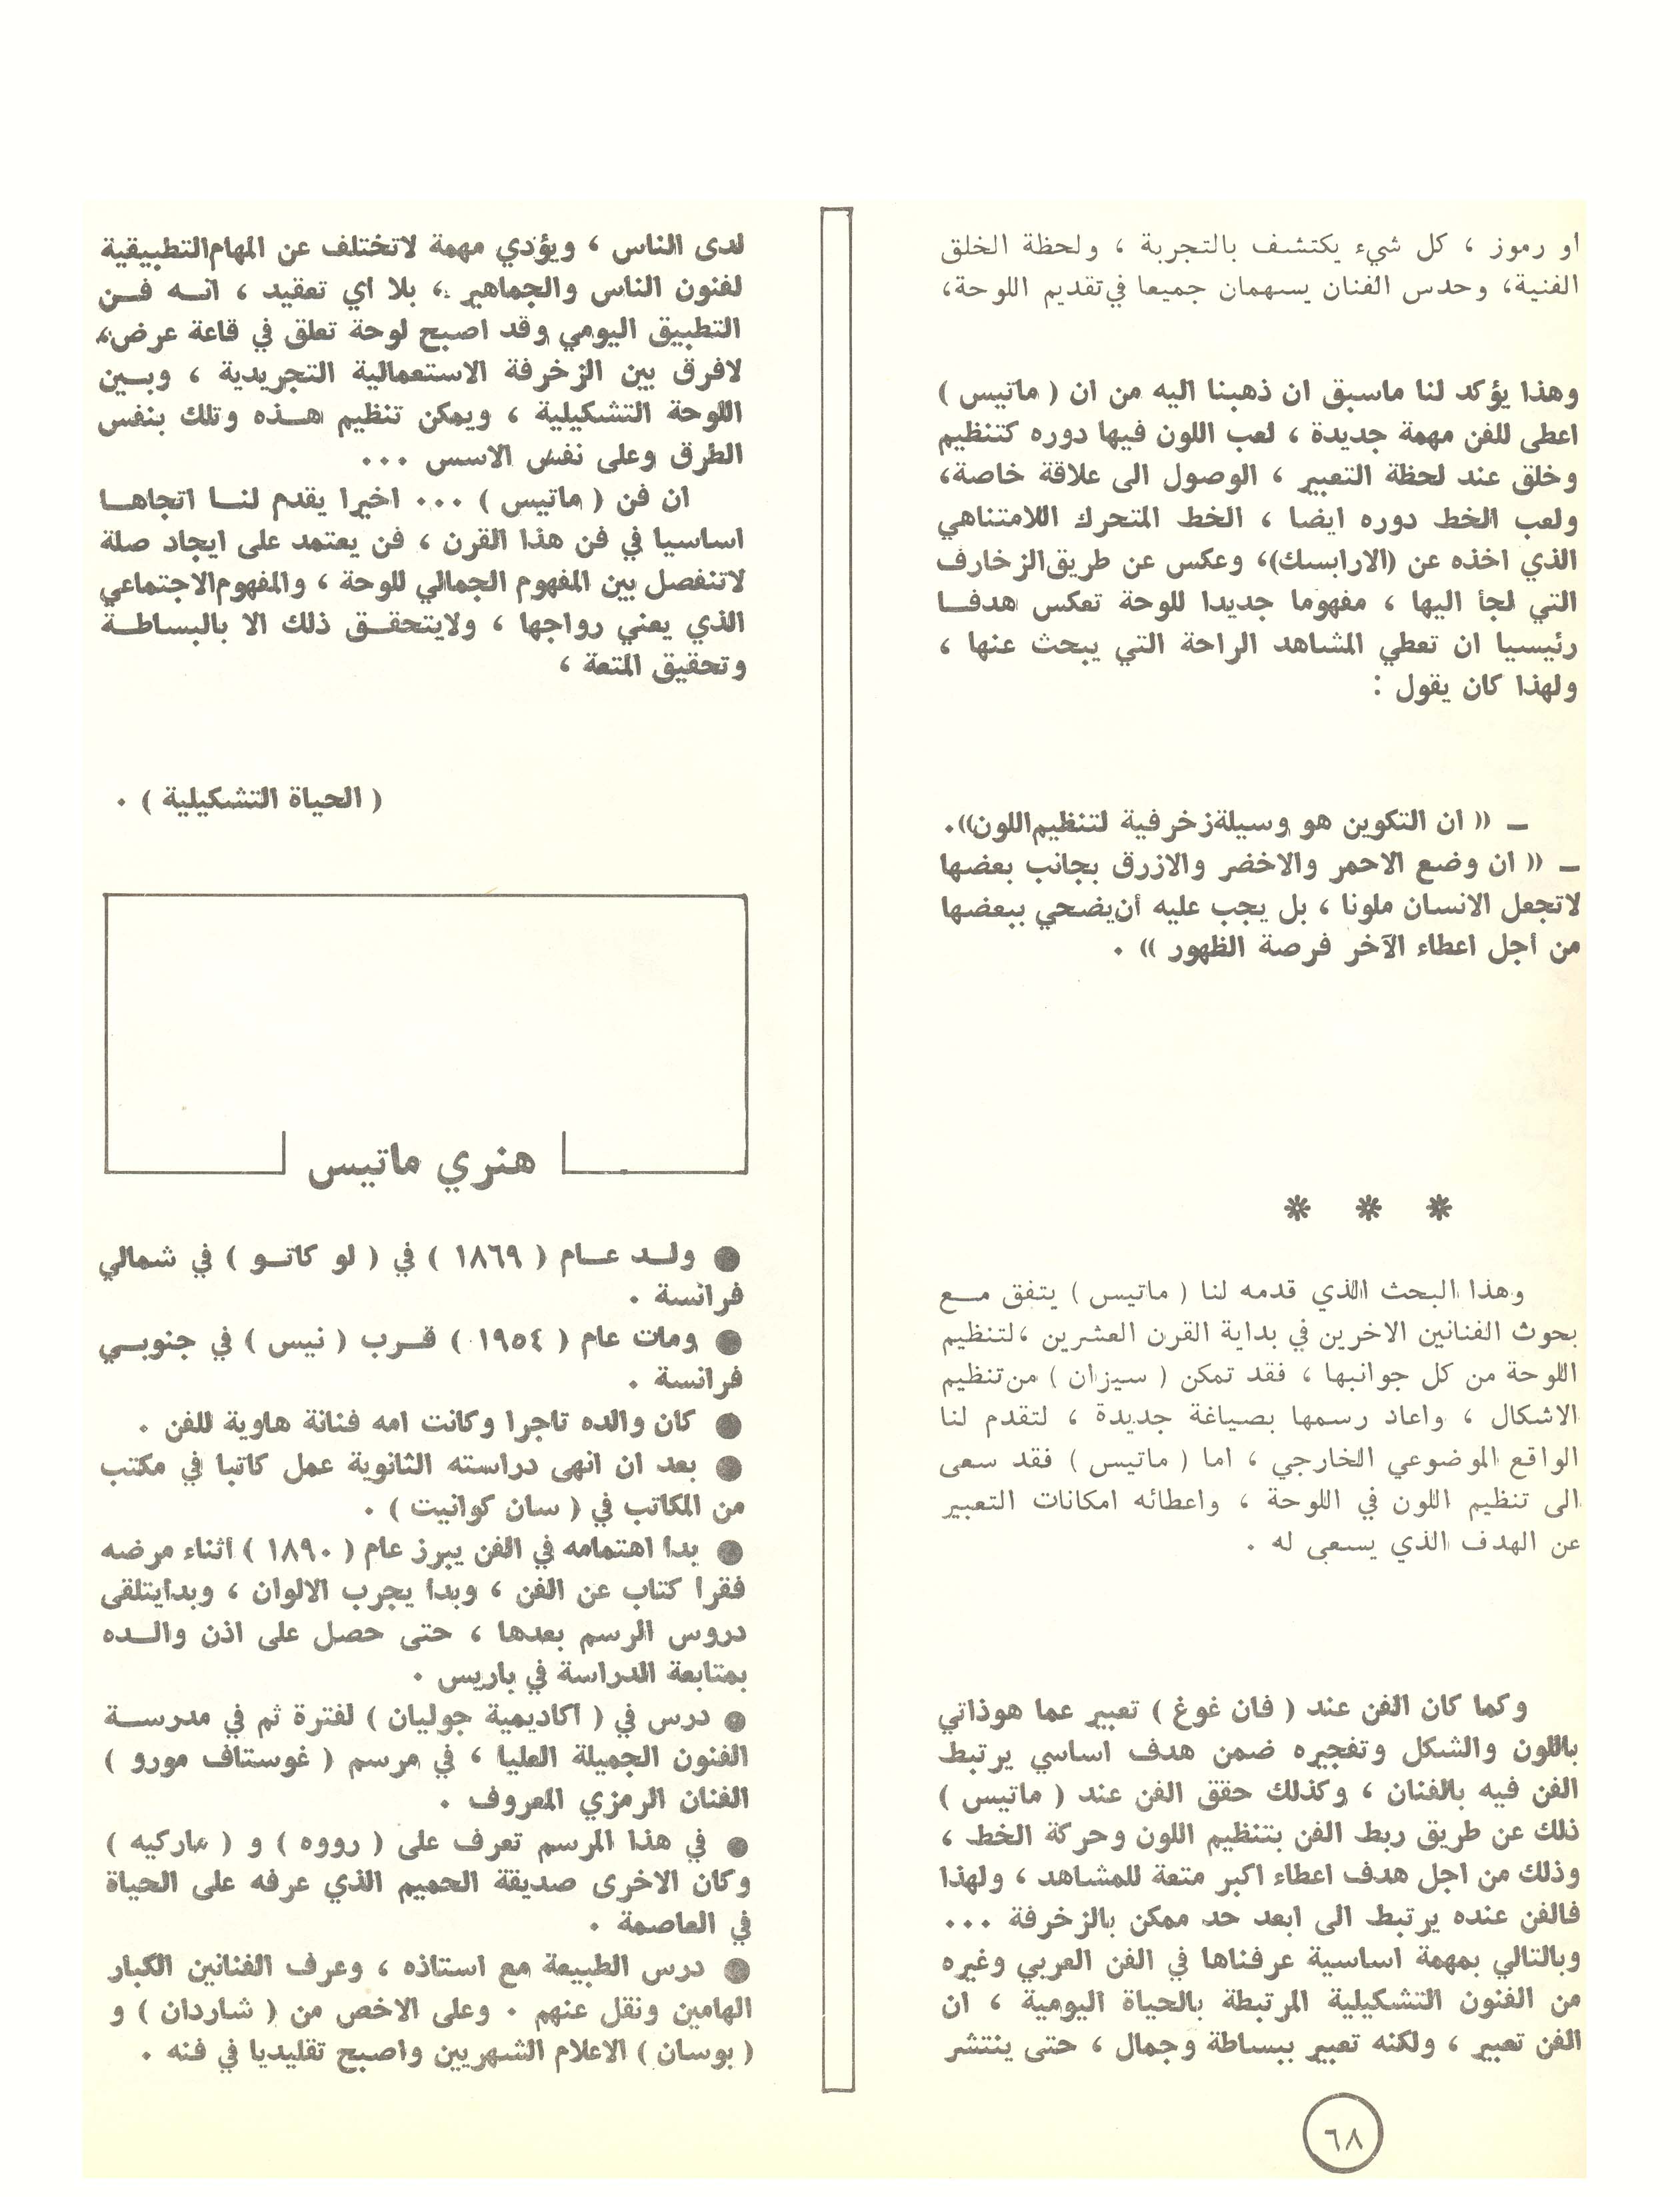 او رموز ، كل شيء يكتشف بالتجربة ، ولحظة الخلق
الفنية، وحدس الفنان يسهمان جميعا في تقديم اللوحة،
وهذا يؤكد لنا ماسبق ان ذهبنا اليه من ان ( ماتيس )
اعطى للفن مهمة جديدة ، لعب اللون فيها دوره كتنظيم
وخلق عند لحظة التعبير ، الوصول الى علاقة خاصة،
ولعب الخط دوره ايضا ، الخط المتحرك اللامتناهي
الذي اخذه عن (الارابسك)، وعكس عن طريق الزخارف
التي لجأ اليها ، مفهوما جديدا للوحة تعكس هدفا
رئيسيا ان تعطي المشاهد الراحة التي يبحث عنها ،
ولهذا كان يقول :
ــ (( ان التكوين هو وسيلة زخرفية لتنظيم اللون)).
ــ (( ان وضع الاحمر والاخضر والازرق بجانب بعضها
لاتجعل الانسان ملونا ، بل يجب عليه أن يضحي ببعضها
من أجل اعطاء الآخر فرصة الظهور )) .
* * *
وهذا البحث الذي قدمه لنا ( ماتيس ) يتفق مــع
بحوث الفنانين الاخرين في بداية القرن العشرين ،لتنظيم
اللوحة من كل جوانبها ، فقد تمكن ( سيزان ) من تنظيم
الاشكال ، واعاد رسمها بصياغة جديدة ، لتقدم لنا
الواقع الموضوعي الخارجي ، اما ( ماتيس ) فقد سعى
الى تنظيم اللون في اللوحة ، واعطائه امكانات التعبير
عن الهدف الذي يسعى له .
وكما كان الفن عند ( فان غوغ ) تعبير عما هوذاتي
باللون والشكل وتفجيره ضمن هدف اساسي يرتبط
الفن فيه بالفنان ، وكذلك حقق الفن عند ( ماتيس )
ذلك عن طريق ربط الفن بتنظيم اللون وحركة الخط ،
وذلك من اجل هدف اعطاء اكبر متعة للمشاهد ، ولهذا
فالفن عنده يرتبط الى ابعد حد ممكن بالزخرفة ...
وبالتالي بمهمة اساسية عرفناها في الفن العربي وغيره
من الفنون التشكيلية المرتبطة بالحياة اليومية ، ان
الفن تعبير ، ولكنه تعبير ببساطة وجمال ، حتى ينتشر
لدى الناس ، ويؤدي مهمة لاتختلف عن المهام التطبيقية
لفنون الناس والجماهير ، بلا اي تعقيد ، انــه فــن
التطبيق اليومي وقد اصبح لوحة تعلق في قاعة عرض،
لافرق بين الزخرفة الاستعمالية التجريدية ، وبــين
اللوحة التشكيلية ، ويمكن تنظيم هــذه وتلك بنفس
الطرق وعلى نفس الاسس ...
ان فن ( ماتيس ) ... اخيرا يقدم لنــا اتجاهــا
اساسيا في فن هذا القرن ، فن يعتمد على ايجاد صلة
لاتنفصل بين المفهوم الجمالي للوحة ، والمفهوم الاجتماعي
الذي يعني رواجها ، ولايتحقــق ذلك الا بالبساطــة
وتحقيق المتعة ،
( الحياة التشكيلية ) .
هنري ماتيس
● ولــد عــام ( ١٨٦٩ ) في ( لو كاتــو ) في شمالي
فرانسة .
● ومات عام ( ١٩٥٤ ) قــرب ( نيس ) في جنوبــي
فرانسة .
● كان والده تاجرا وكانت امه فنانة هاوية للفن .
● بعد ان انهى دراسته الثانوية عمل كاتبا في مكتب
من المكاتب في ( سان كوانيت ) .
● بدأ اهتمامه في الفن يبرز عام ( ١٨٩٠ ) أثناء مرضه
فقرأ كتاب عن الفن ، وبدأ يجرب الالوان ، وبدأيتلقى
دروس الرسم بعدها ، حتى حصل على اذن والــده
بمتابعة الدراسة في باريس .
● درس في ( أكاديمية جوليان ) لفترة ثم في مدرســة
الفنون الجميلة العليا ، في مرسم ( غوستاف مورو )
الفنان الرمزي المعروف .
● في هذا المرسم تعرف على ( رووه ) و ( ماركيه )
وكان الاخرى صديقة الحميم الذي عرفه على الحياة
في العاصمة .
● درس الطبيعة مع استاذه ، وعرف الفنانين الكبار
الهامين ونقل عنهم . وعلى الاخص من ( شاردان ) و
( بوسان ) الاعلام الشهريين واصبح تقليديا في فنه .
٦٨